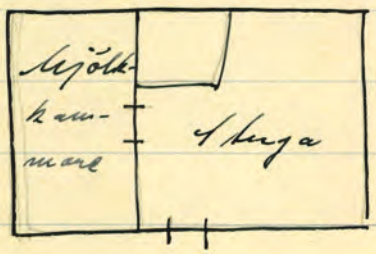 Mjölk-
kam-
mare
Stuga